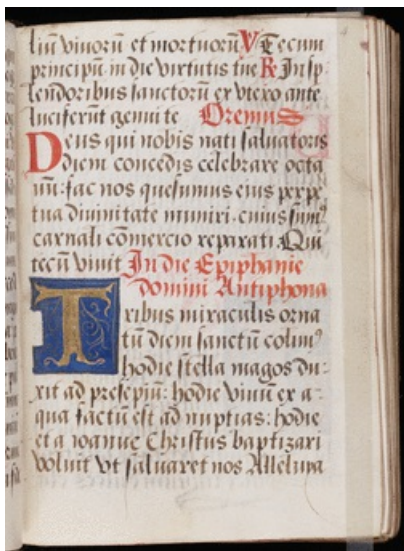 liū viuorū et mortuorū V Tecum
principiū in die virtutis tue R In sp
lendoribus sanctorū ex vtero ante
luciferūt genui te Oremus
Deus qui nobis nati saluatoris
diem concedis celebrare octa
uū: fac nos quesumus eius perpe
tua diuinitate muniri. cuius sum9
carnali cōmercio reparati. Qui
tecū viuit In die Epiphanie
domini Antiphona
Tribus miraculis orna
tū diem sanctū colim9
hodie stella magos du-
xit ad presepiū: hodie vinū ex a-
qua factū est ad nuptias: hodie
et a ioanne Christus baptizari
voluit vt saluaret nos Alleluya